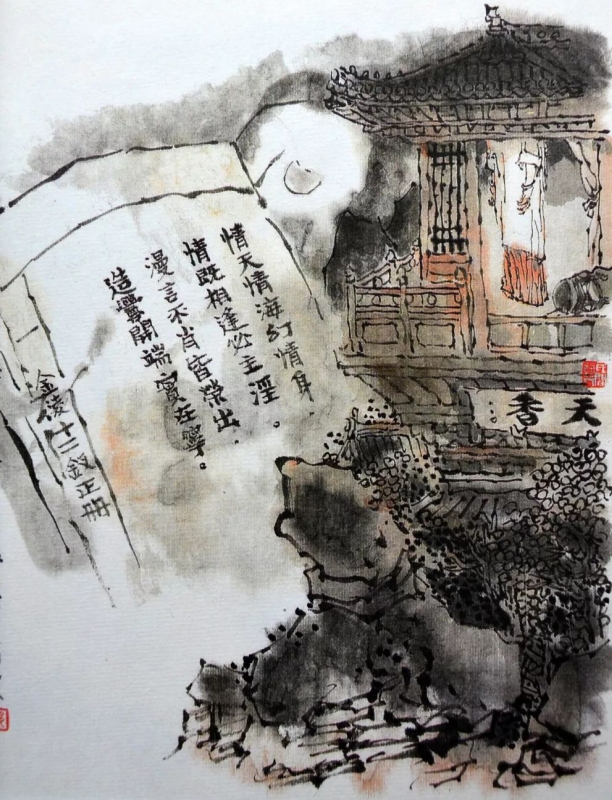 天香
情天情海幻情身.
情既相逢必主淫。
漫言不肖皆榮出.
造釁開端實在寧。
金陵十二釵正冊